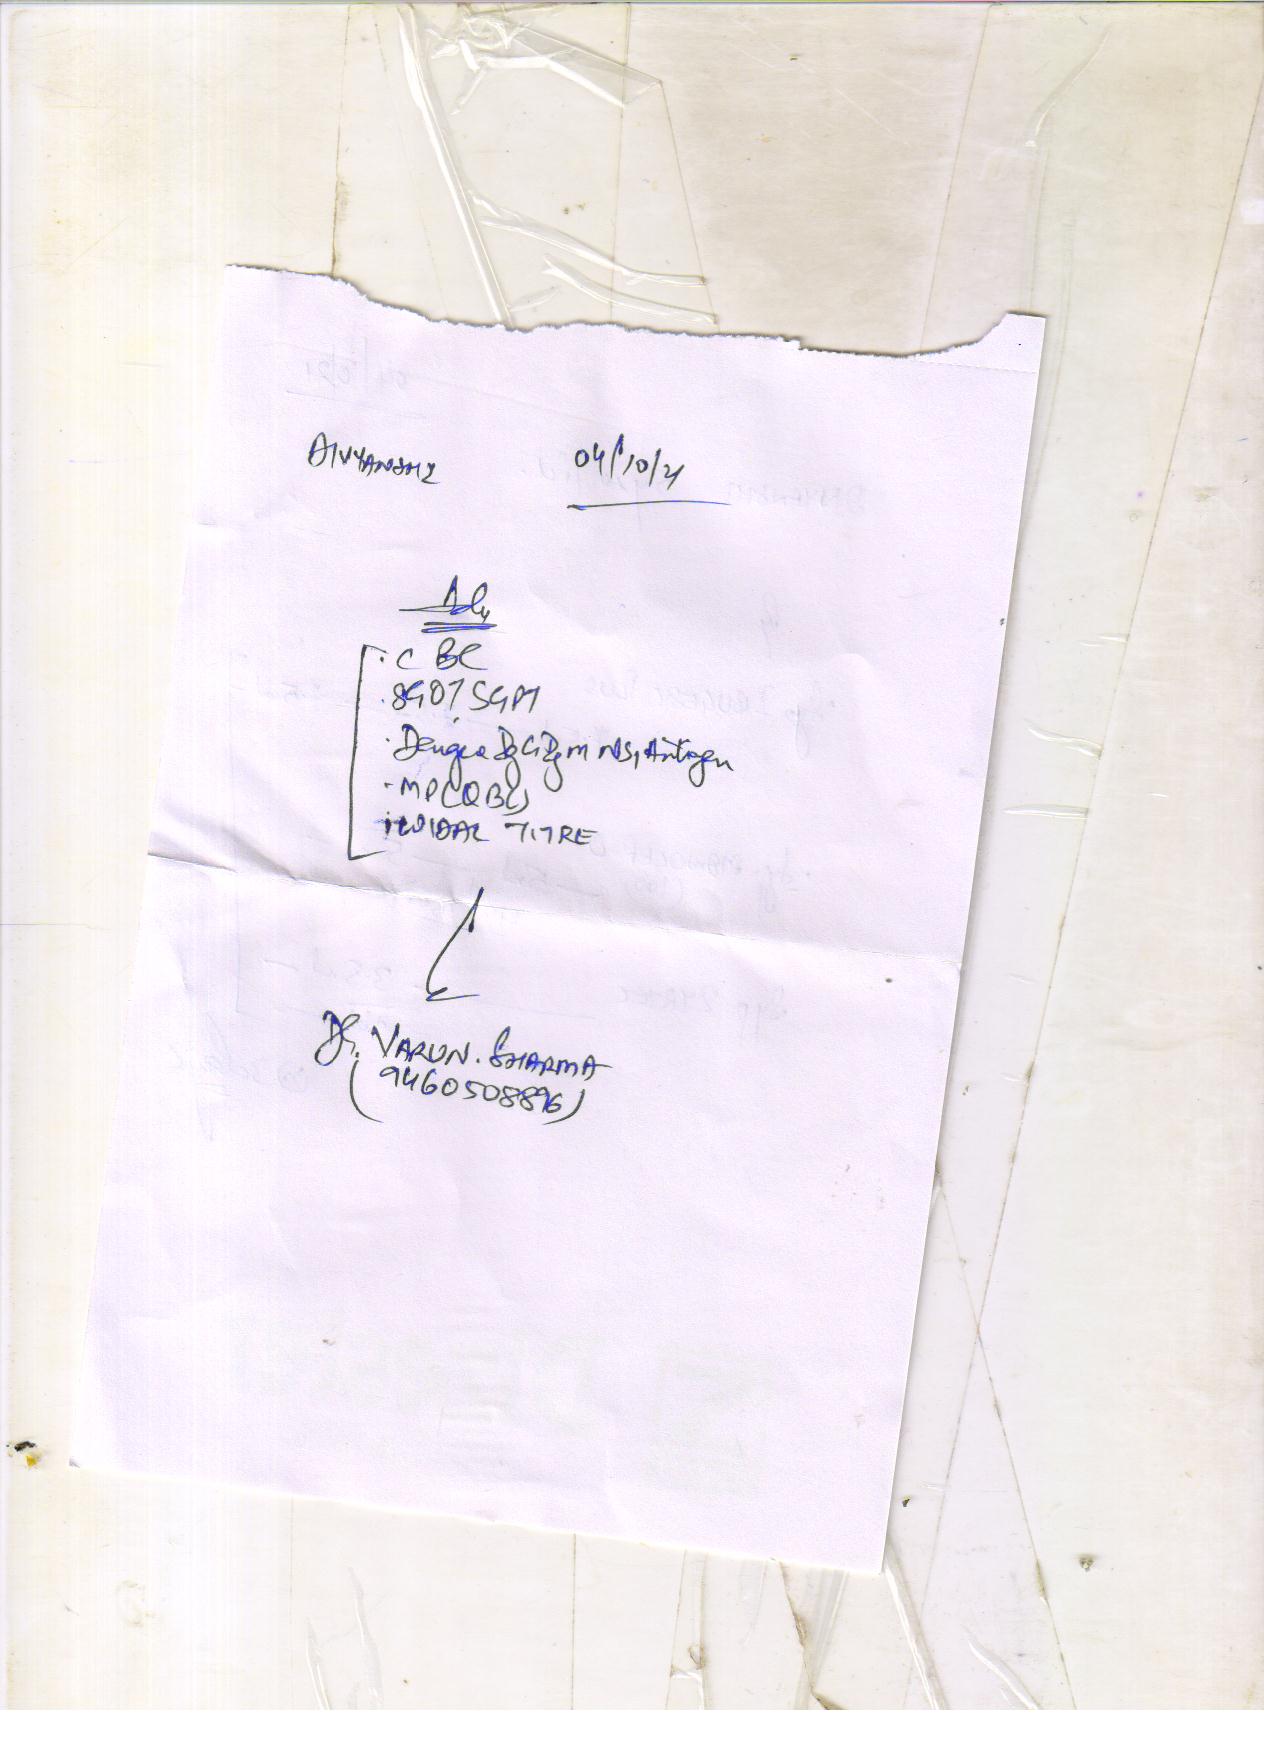 DIVYANSHI 04/10/21
Adv
. CBC
. SGOT SGPT
. Dengue IgG IgM NS1 Antigen
- MP (QBC)
. WIDAL TITRE
Dr. VARUN. SHARMA
(9460508896)